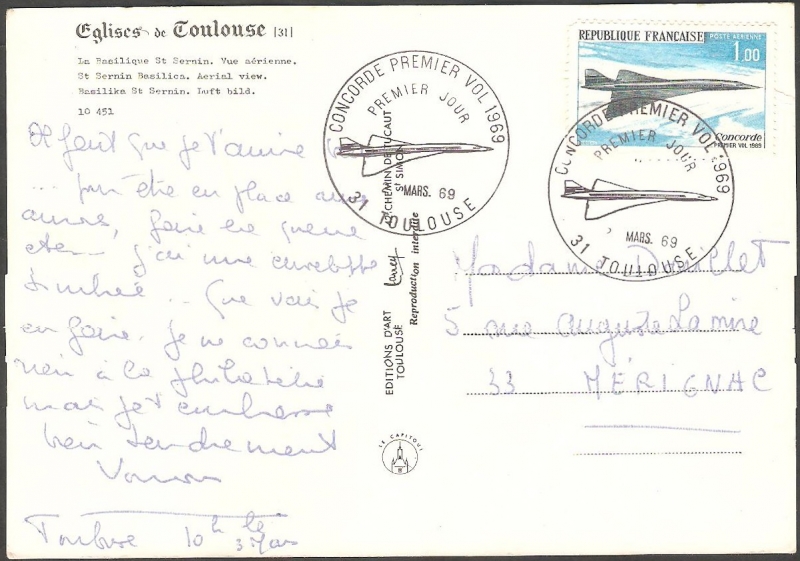 Eglises de Toulouse [31]
La Basilique St Sernin. Vue aérienne.
St Sernin Basilica. Aerial view.
Basilika St Sernin. Luft bild.
10 451
REPUBLIQUE FRANÇAISE
POSTE AERIENNE
1,00
Concorde
PREMIER VOL 1969
CONCORDE PREMIER VOL 1969
PREMIER JOUR
MARS. 69
31 TOULOUSE
CONCORDE PREMIER VOL 1969
PREMIER JOUR
MARS. 69
31 TOULOUSE
CHEMIN DE TUCAUT
ST SIMON
Larrey
Reproduction interdite
EDITIONS D'ART
TOULOUSE
LE CAPITOUL
Il faut que je
être en place
faire la queue
j'ai une enveloppe
timbrée .. Que vais je
en faire. je ne connais
rien à la philatélie
mais je t'embrasse
bien tendrement
Toulouse 10h le
3 Mars
Madame
5 rue Auguste Lamire
33 MÉRIGNAC